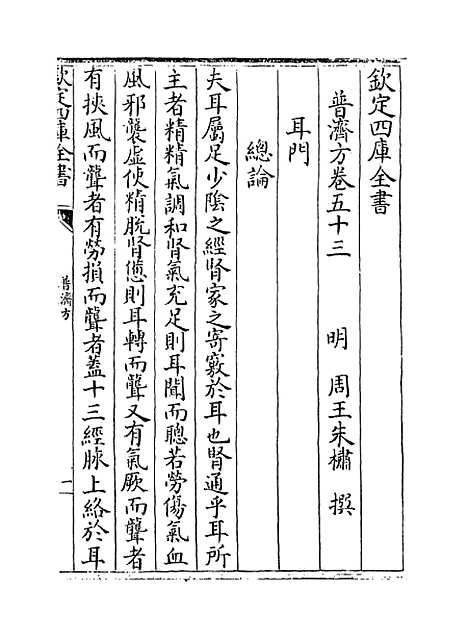 欽定四庫全書
普濟方卷五十三
明 周王朱橚 撰
耳門
總論
夫耳屬足少陰之經腎家之寄竅於耳也腎通乎耳所
主者精精氣調和腎氣充足則耳聞而聰若勞傷氣血
風邪襲虛使精脱腎憊則耳轉而聾又有氣厥而聾者
有挾風而聾者有勞損而聾者蓋十三經脉上絡於耳
欽定四庫全書
普濟方